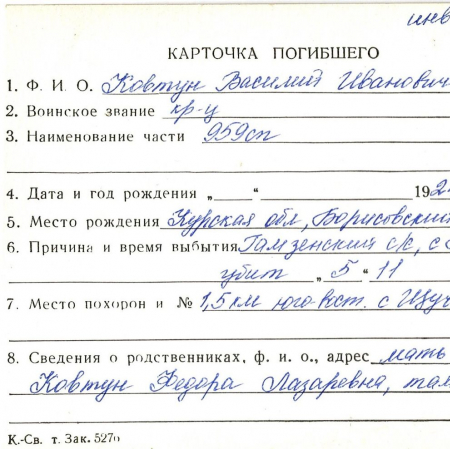 инв
КАРТОЧКА ПОГИБШЕГО
1. Ф. И. О. Ковтун Василий Иванович
2. Воинское звание кр-ц
3. Наименование части 959сп
4. Дата и год рождения „ “ 192
5. Место рождения Курская обл, Борисовский
6. Причина и время выбытия Гамзенский с/с, с
убит „ 5 “ 11
7. Место похорон и № 1,5 км юго-вст. с Щуч
8. Сведения о родственниках, ф. и о., адрес мать
Ковтун Федора Лазаревна, там
К.-Св. т. Зак. 527о